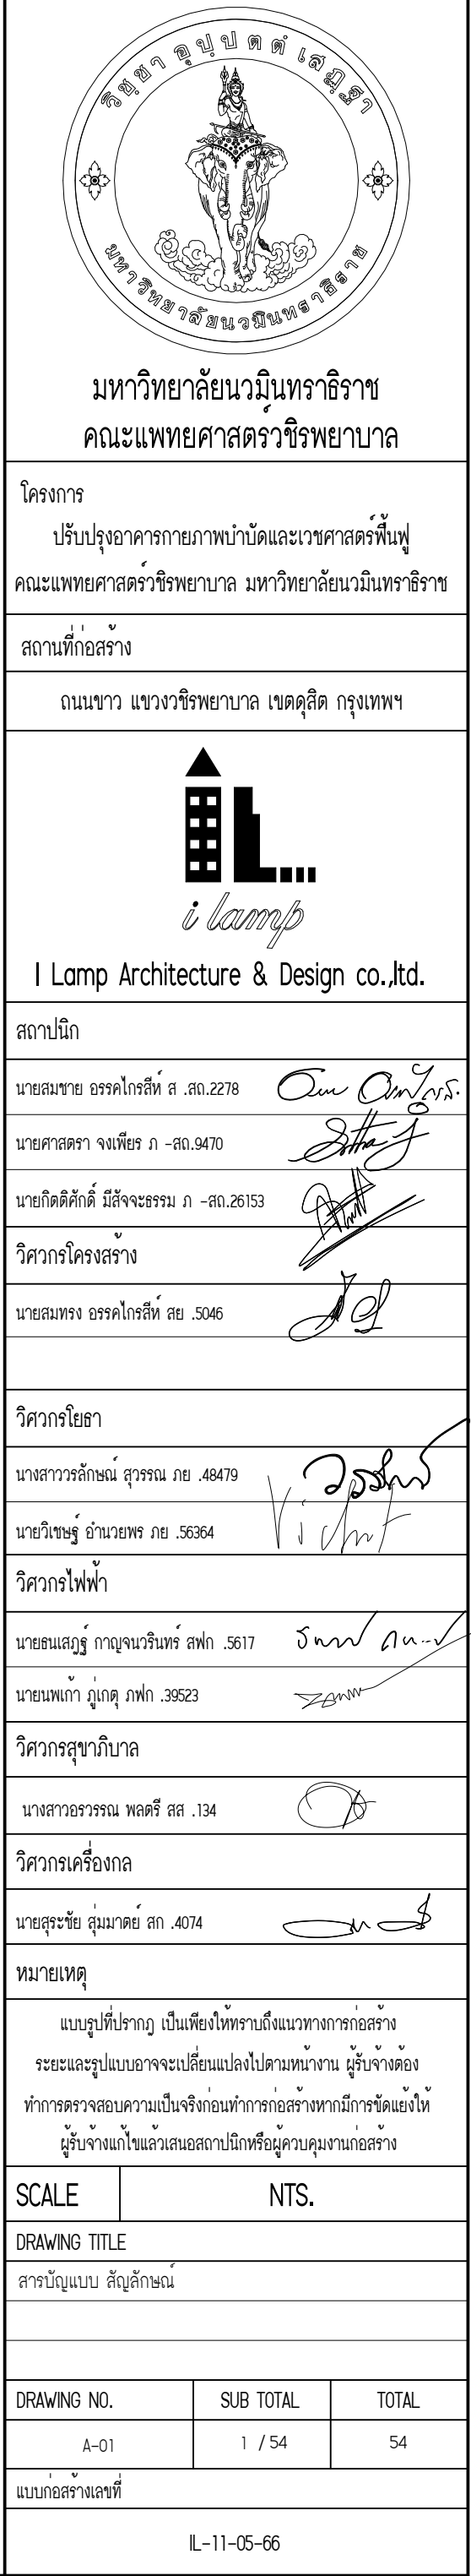 วิชฺชา อุปฺปตตํ เสฏฺฐา
มหาวิทยาลัยนวมินทราธิราช
มหาวิทยาลัยนวมินทราธิราช
คณะแพทยศาสตร์วชิรพยาบาล
โครงการ
ปรับปรุงอาคารกายภาพบำบัดและเวชศาสตร์ฟื้นฟู
คณะแพทยศาสตร์วชิรพยาบาล มหาวิทยาลัยนวมินทราธิราช
สถานที่ก่อสร้าง
ถนนขาว แขวงวชิรพยาบาล เขตดุสิต กรุงเทพฯ
i lamp
I Lamp Architecture & Design co.,ltd.
สถาปนิก
นายสมชาย อรรคไกรสีห์ ส .สถ.2278
นายศาสตรา จงเพียร ภ -สถ.9470
นายกิตติศักดิ์ มีสัจจะธรรม ภ -สถ.26153
วิศวกรโครงสร้าง
นายสมทรง อรรคไกรสีห์ สย .5046
วิศวกรโยธา
นางสาววรลักษณ์ สุวรรณ ภย .48479
นายวิเชษฐ์ อำนวยพร ภย .56364
วิศวกรไฟฟ้า
นายธนเสฎฐ์ กาญจนวรินทร์ สฟก .5617
นายนพเก้า ภู่เกตุ ภฟก .39523
วิศวกรสุขาภิบาล
นางสาวอรวรรณ พลตรี สส .134
วิศวกรเครื่องกล
นายสุระชัย สุ่มมาตย์ สก .4074
หมายเหตุ
แบบรูปที่ปรากฎ เป็นเพียงให้ทราบถึงแนวทางการก่อสร้าง
ระยะและรูปแบบอาจจะเปลี่ยนแปลงไปตามหน้างาน ผู้รับจ้างต้อง
ทำการตรวจสอบความเป็นจริงก่อนทำการก่อสร้างหากมีการขัดแย้งให้
ผู้รับจ้างแก้ไขแล้วเสนอสถาปนิกหรือผู้ควบคุมงานก่อสร้าง
SCALE NTS.
DRAWING TITLE
สารบัญแบบ สัญลักษณ์
DRAWING NO. SUB TOTAL TOTAL
A-01 1 / 54 54
แบบก่อสร้างเลขที่
IL-11-05-66